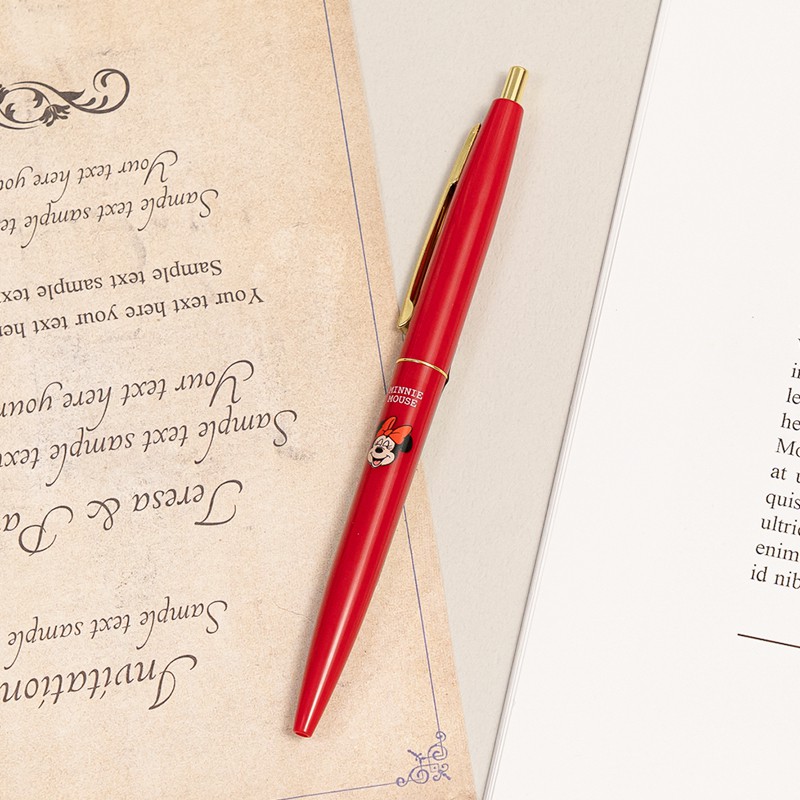 MINNIE
MOUSE
Invitation
Sample text sample
Teresa & Pa
Sample text sample text
Your text here your
Your text here your text her
Sample text sample tex
Sample text sample te
Your text here you
le
he
Mo
at u
quis
ultric
enim
id nib